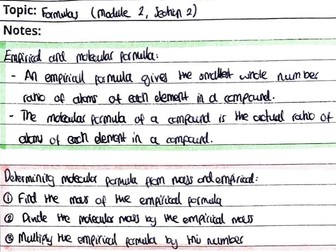 Topic: Formulas (Module 2, Section 2)
Notes:
Empirical and molecular formula:
- An empirical formula gives the smallest whole number
ratio of atoms of each element in a compound.
- The molecular formula of a compound is the actual ratio of
atoms of each element in a compound.
Determining molecular formula from mass and empirical:
① Find the mass of the empirical formula
② Divide the molecular mass by the empirical mass
③ Multiply the empirical formula by this number